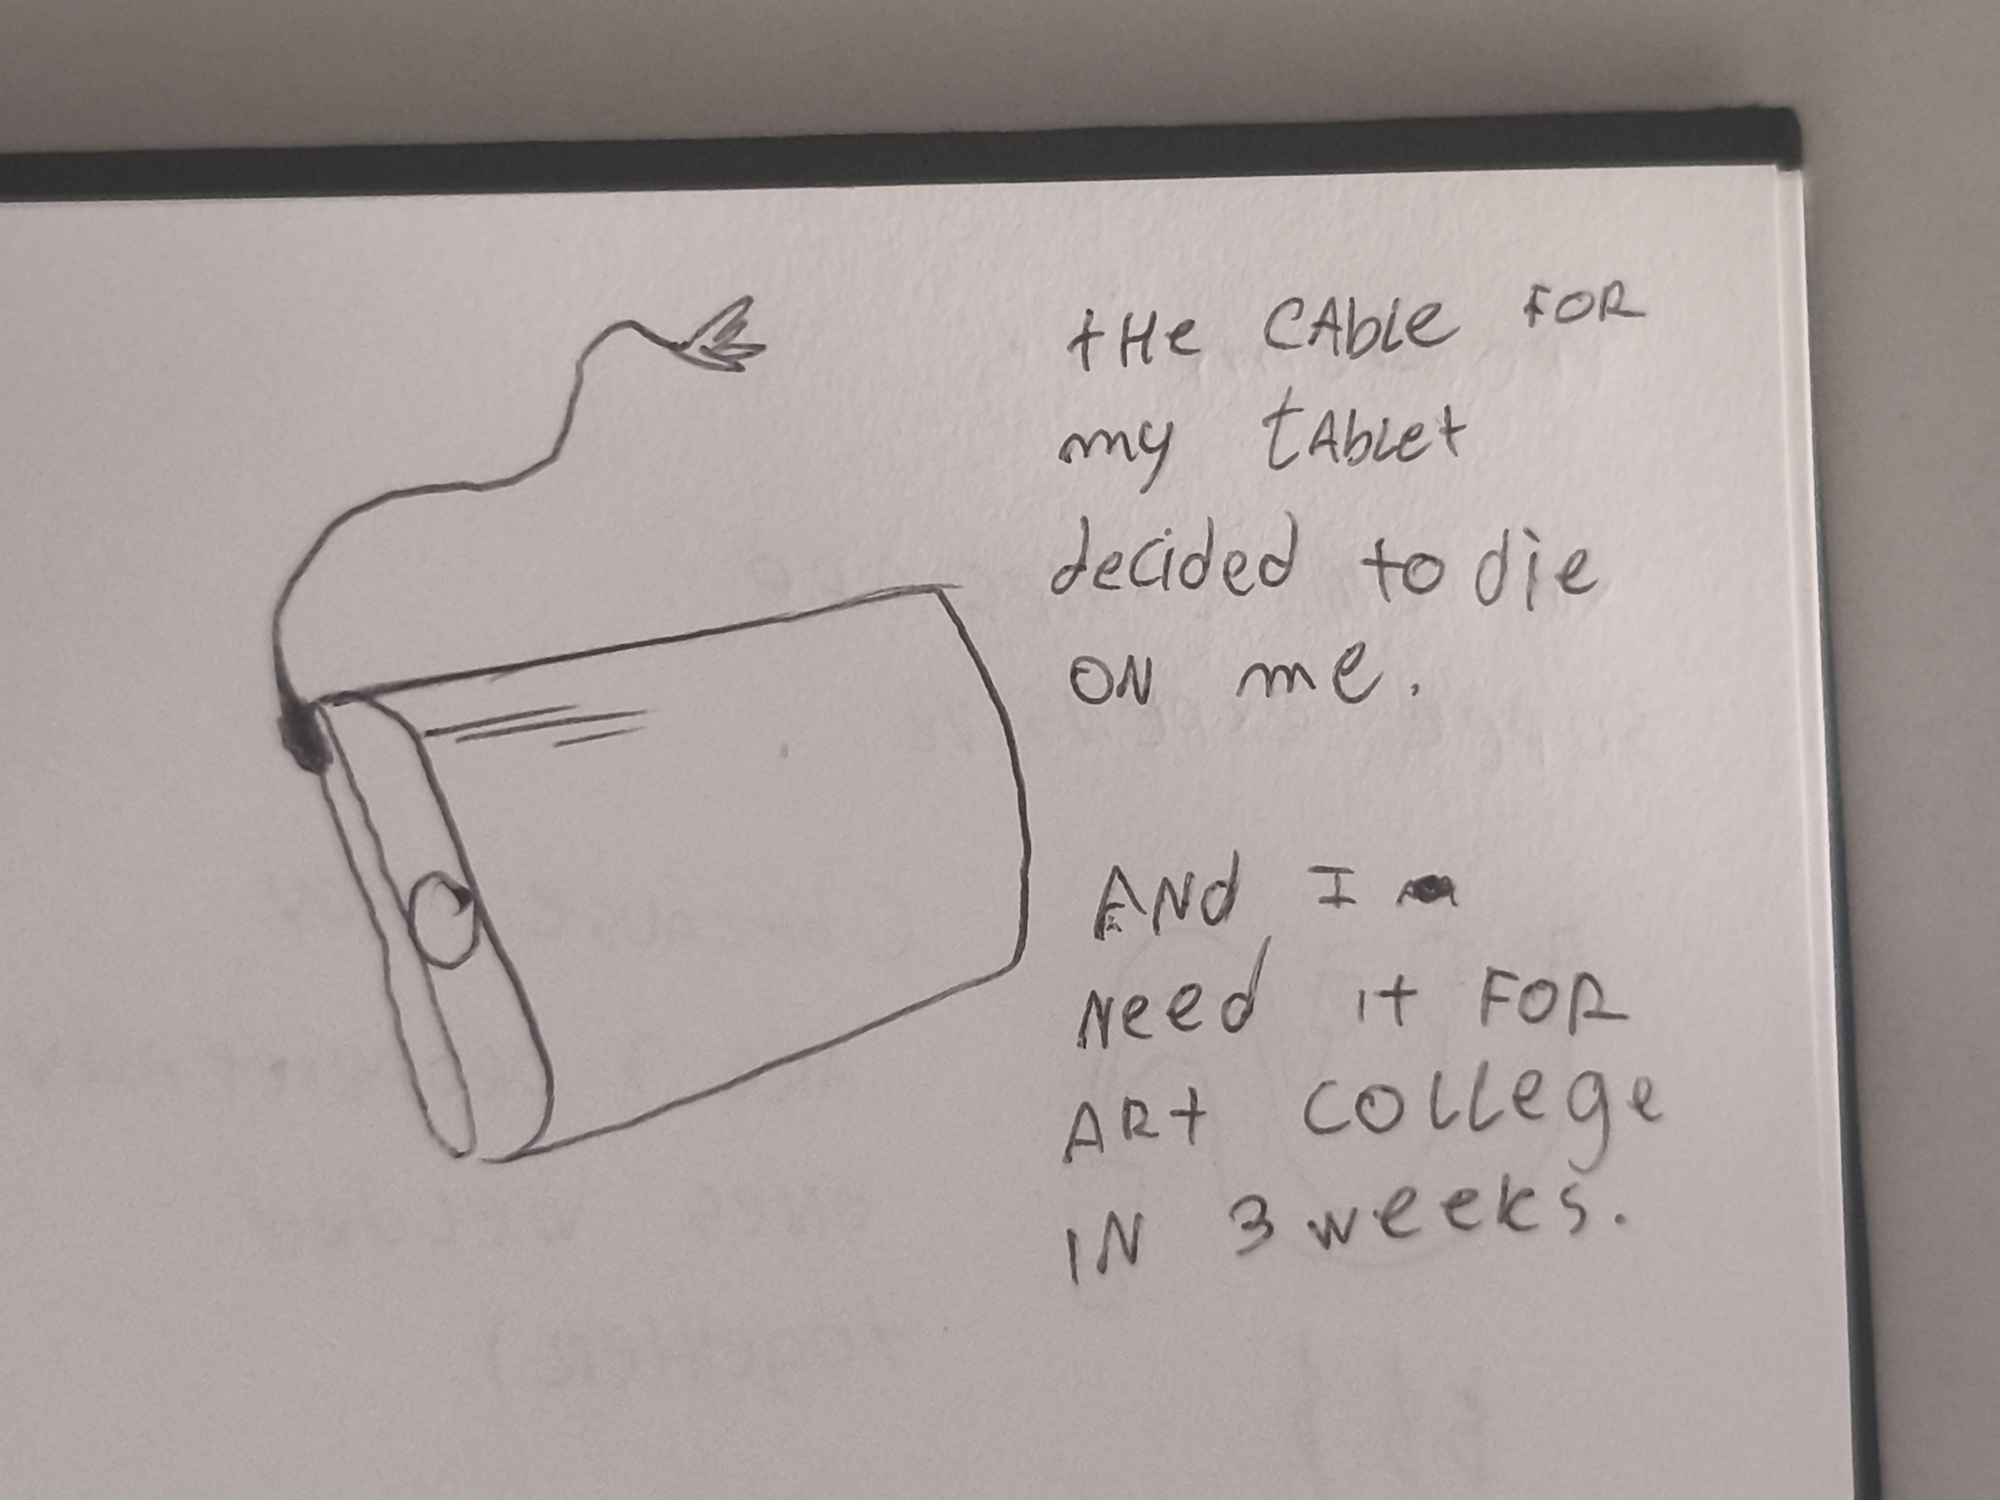 tHe CAbLe FOR
my tAbLet
decided to die
ON me.
ANd I
Need it FOR
ARt COLLege
IN 3 weeks.